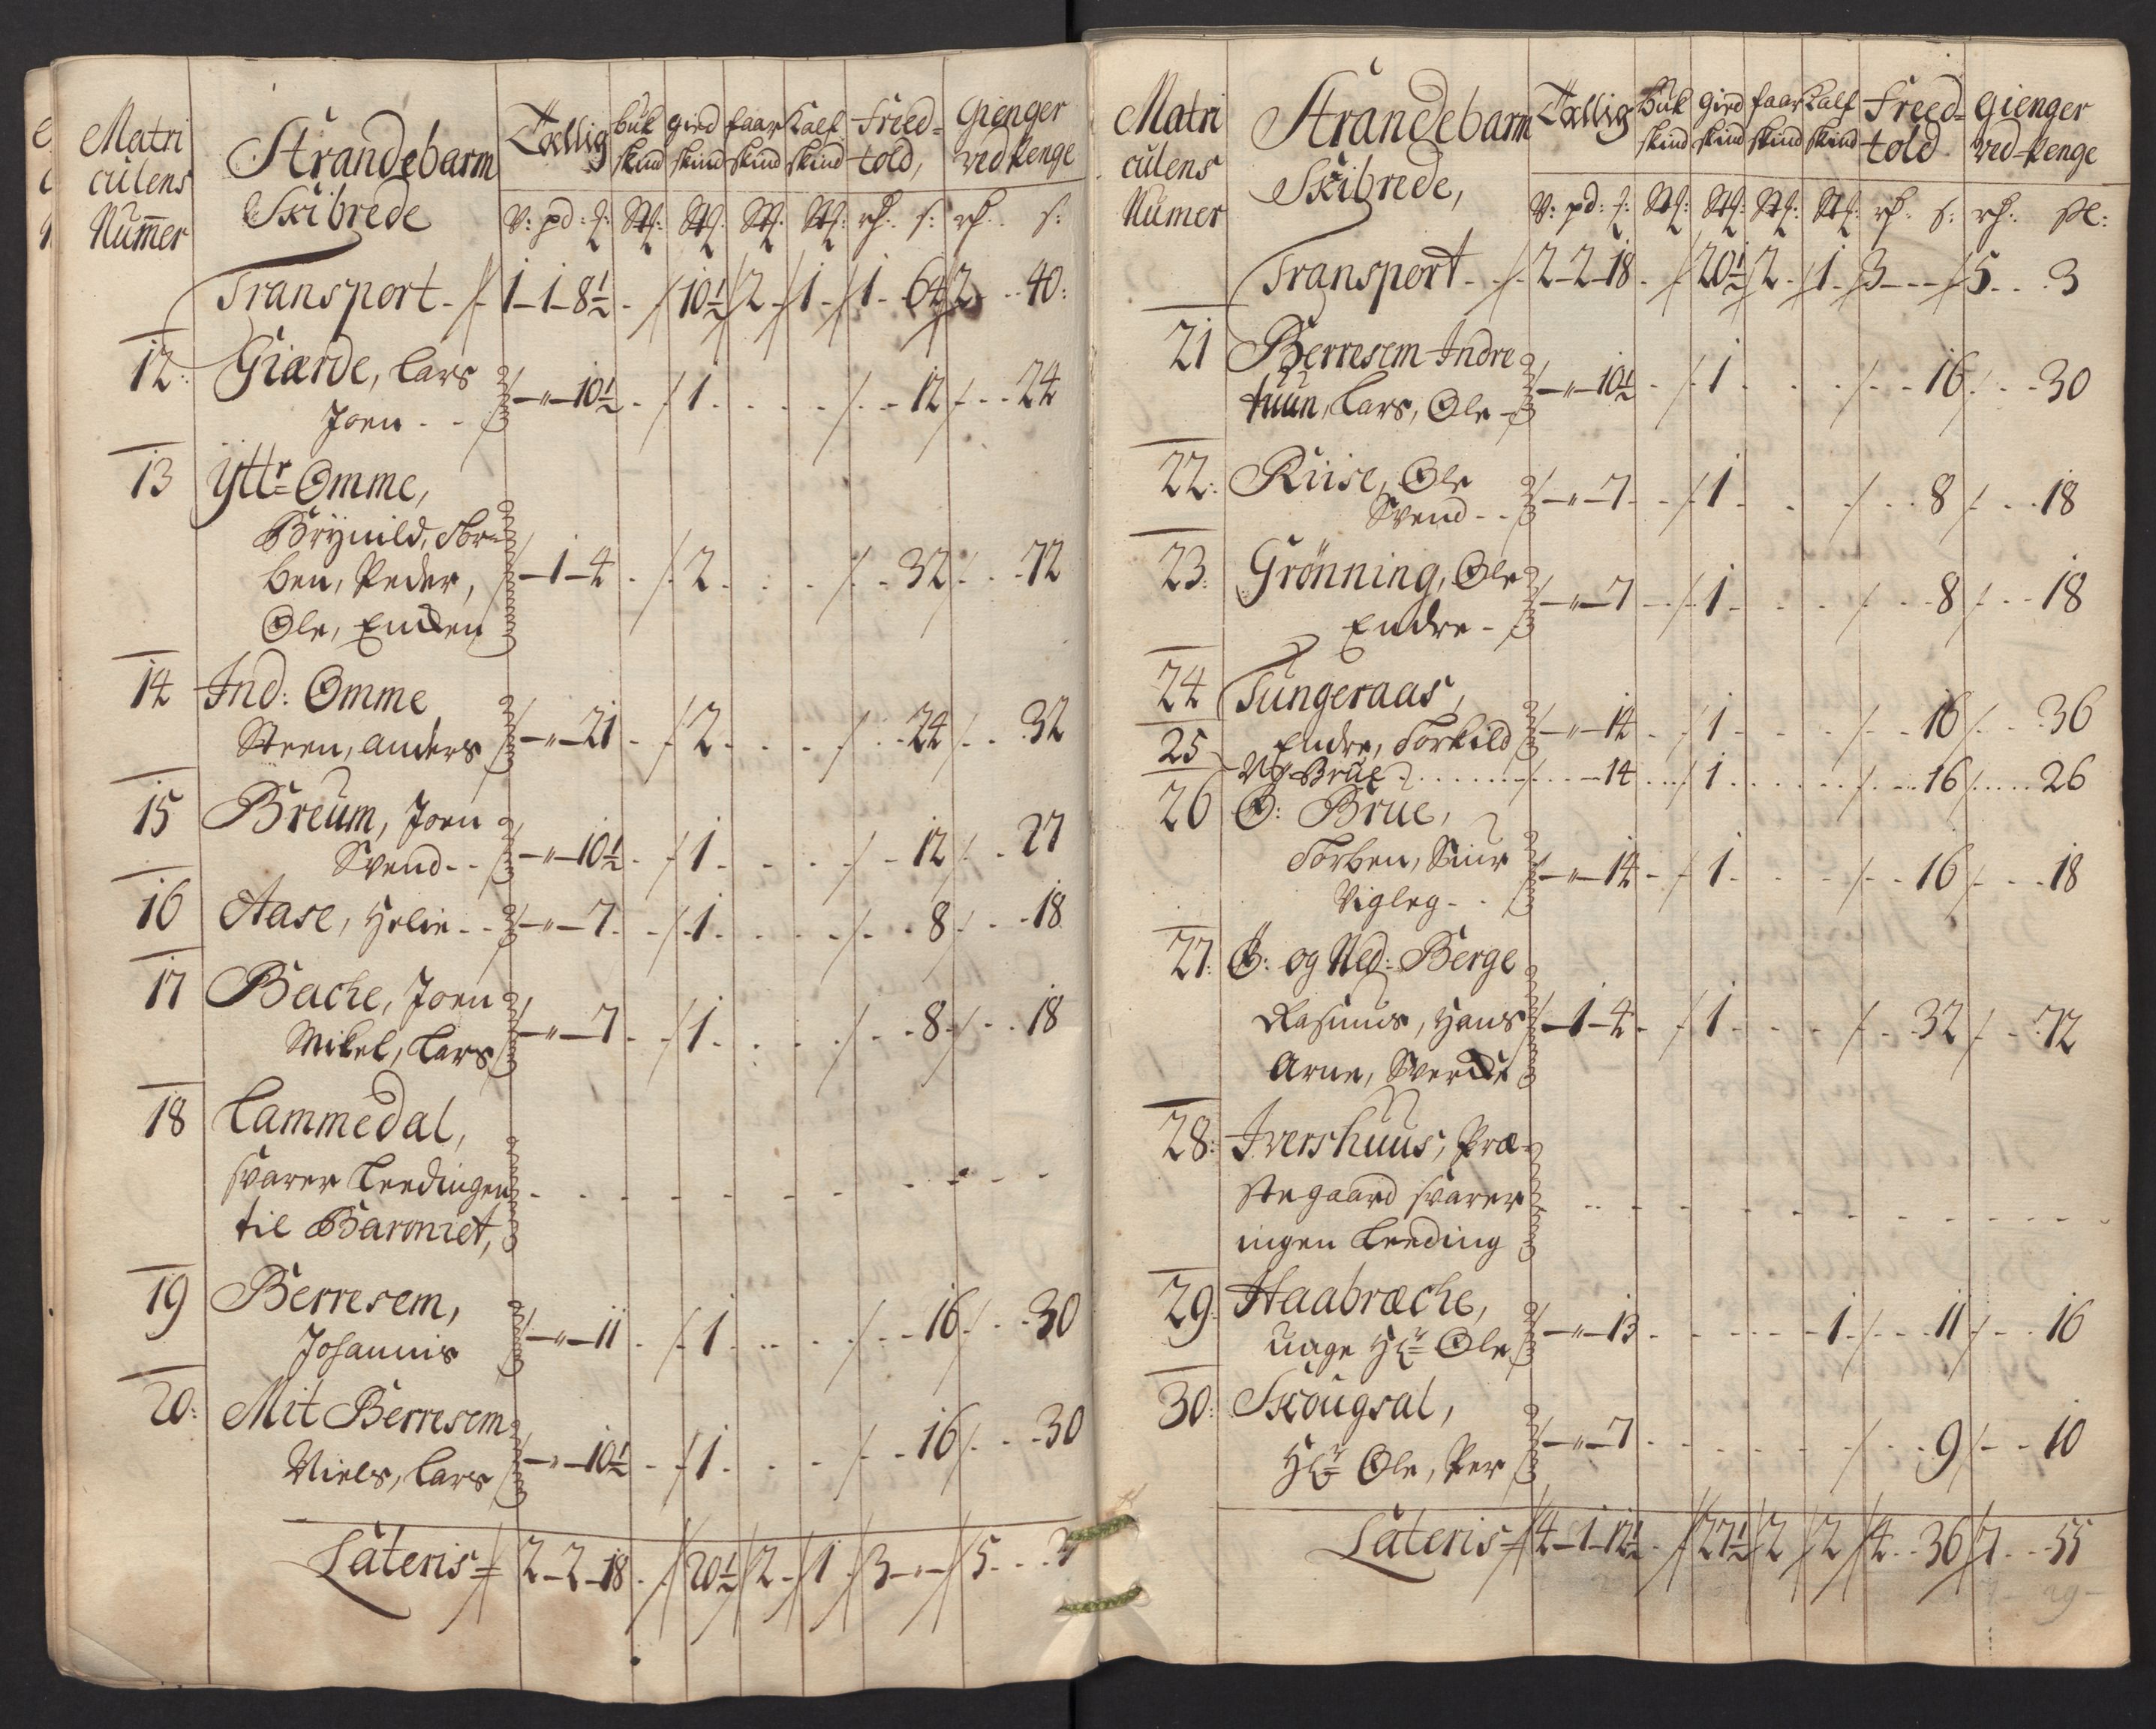 Matri
culens
Numer
Strandebarm
Skibrede
Tællig
buk skind
gied skind
faar skind
Kalf skind
Freed-
told,
Gienger
ved Penge
V: pd: St: St: St: St: rh: s: rh: s:
Transport - 1-1-8½ - 10½ 2 - 1 - 1 - 64 2 - 40:
12: Giærde, Lars
Joen - - " - 10½ - 1 - - - 12 - - 24
13 Ytt:r Omme,
Brynild, Tor-
ben, Peder, - 1 - 4 - 2 - - - 32 - - 72
Ole, Enden
14 Ind: Omme
Steen, anders - " - 21 - 2 - - - 24 - - 32
15 Breum, Joen
Svend - - " - 10½ - 1 - - - 12 - - 27
16 Aase, Helie - - " - 7 - 1 - - - 8 - - 18
17 Bache, Joen
Mikel, Lars - " - 7 - 1 - - - 8 - - 18
18 Lammedal,
svarer Leedingen
til Baroniet,
19 Berresem,
Johannis - " - 11 - 1 - - - 16 - - 30
20: Mit Berresem
Niels, Lars - " - 10½ - 1 - - - 16 - - 30
Lateris = 2-2-18 - 20½ 2 - 1 - 3 - " - 5 - - 3
Matri
culens
Numer
Strandebarm
Skibrede,
Tællig
Buk skind
gied skind
faar skind
Kalf skind
Freed-
told
Gienger
ved Penge
V: pd: St: St: St: St: rh: s: rh:
Transport - 2-2-18 - 20½ 2 - 1 - 3 - - - 5 - - 3
21 Berresem Indre
tuun, Lars, Ole - " - 10½ - 1 - - - 16 - - 30
22: Riise, Ole
Svend - - " - 7 - 1 - - - 8 - - 18
23: Grønning, Ole
Endre - - " - 7 - 1 - - - 8 - - 18
24 Tungeraas,
Endre, Torkild - " - 14 - 1 - - - 16 - - 36
25 Brue - - - 14 - 1 - - - 16 - - 26
26 Ø: Brue,
Torben, Siur - " - 14 - 1 - - - 16 - - 18
Vigleg - -
27: Ø: og Ned: Berge
Rasmus, Hans - 1 - 4 - 1 - - - 32 - - 72
Arne,
28: Ivershuus, Præ-
stegaard svarer
ingen Leeding
29: Haabræche,
Hr Ole - " - 13 - - - 1 - - 11 - - 16
30: Skougsal,
Hr Ole, Per - " - 7 - - - - 9 - - 10
Lateris = 4-1-12½ - 27½ 2 2 4 - 36 7 - 55